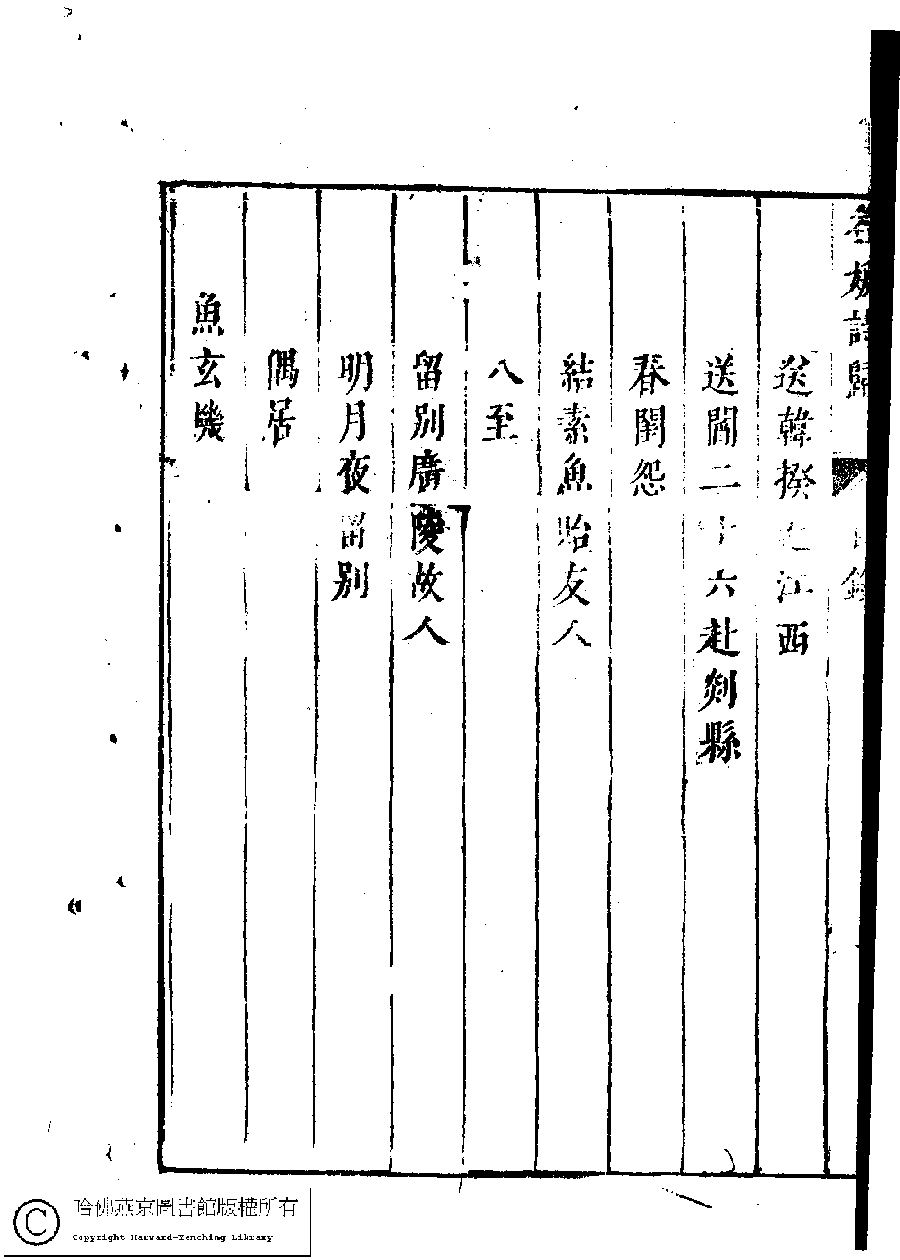 名媛詩歸 目錄
送韓揆之江西
送閻二十六赴剡縣
春閨怨
結素魚貽友人
八至
留別廣陵故人
明月夜留別
偶居
魚玄機
哈佛燕京圖書館版權所有
Copyright Harvard-Yenching Library